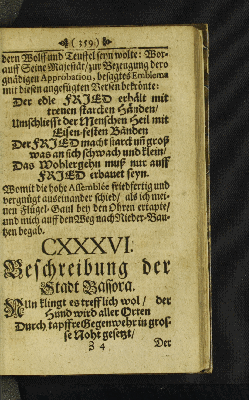 ( 359. )
dern Wolff und Teuffel seyn wolte: Wor-
auff Seine Majestät / zur Bezeugung dero
gnädigen Approbation, besagtes Emblema
mit diesen angefügten Versen bekrönte:
Der edle FRIED erhält mit
treuen starcken Händen /
Umschliesst der Menschen Heil mit
Eisen-festen Bänden
Der FRIED macht starck uñ groß
was an sich schwach und klein /
Das Wohlergehn muß nur auff
FRIED erbauet seyn.
Womit die hohe Assemblée friedfertig und
vergnügt auseinander schied / als ich mei-
nen Flügel-Gaul bey den Ohren ertapte /
und mich auff den Weg nach Nieder-Bau-
tzen begab.
CXXXVI.
Beschreibung der
Stadt Bassora.
NUn klingt es trefflich wol / der
Hund wird aller Orten
Durch tapffre Gegenwehr in gros-
se Noht gesetzt /
Z 4 Der